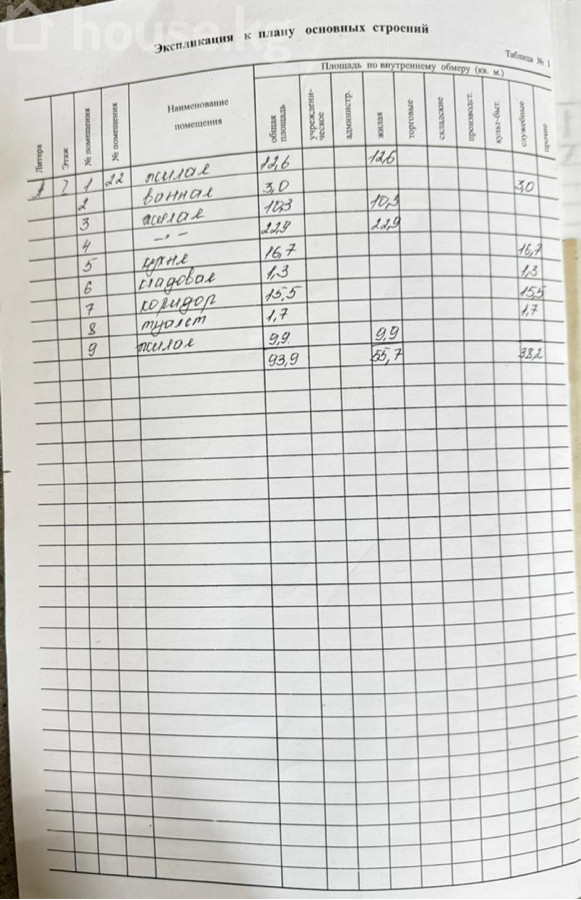 house.kg
Экспликация к плану основных строений
Таблица № 1
Площадь по внутреннему обмеру (кв. м.)
Литера Этаж № помещения № помещения Наименование помещения общая площадь учреждени-ческое администр. жилая торговые складские производст. культ-быт. служебные прочие
1 22 жилая 12,6 12,6
2 ванная 3,0 3,0
3 жилая 10,3 10,3
4 -"- 22,9 22,9
5 кухня 16,7 16,7
6 кладовая 1,3 1,3
7 коридор 15,5 15,5
8 туалет 1,7 1,7
9 жилая 9,9 9,9
93,9 55,7 38,2